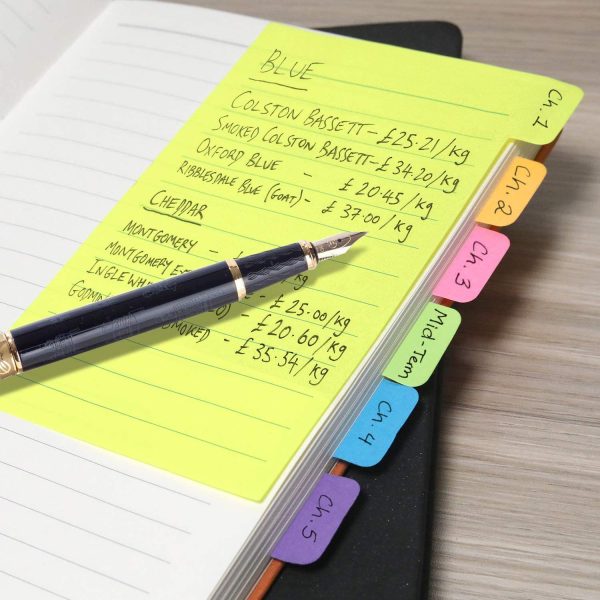 BLUE
COLSTON BASSETT – £25.21/kg
SMOKED COLSTON BASSETT – £34.20/kg
OXFORD BLUE – £20.45/kg
RIBBLESDALE BLUE (GOAT) – £37.00/kg
CHEDDAR
MONTGOMERY –
MONTGOMERY /kg
– £25.00/kg
– £20.60/kg
SMOKED – £35.54/kg
Ch.1
Ch.2
Ch.3
Mid-Term
Ch.4
Ch.5